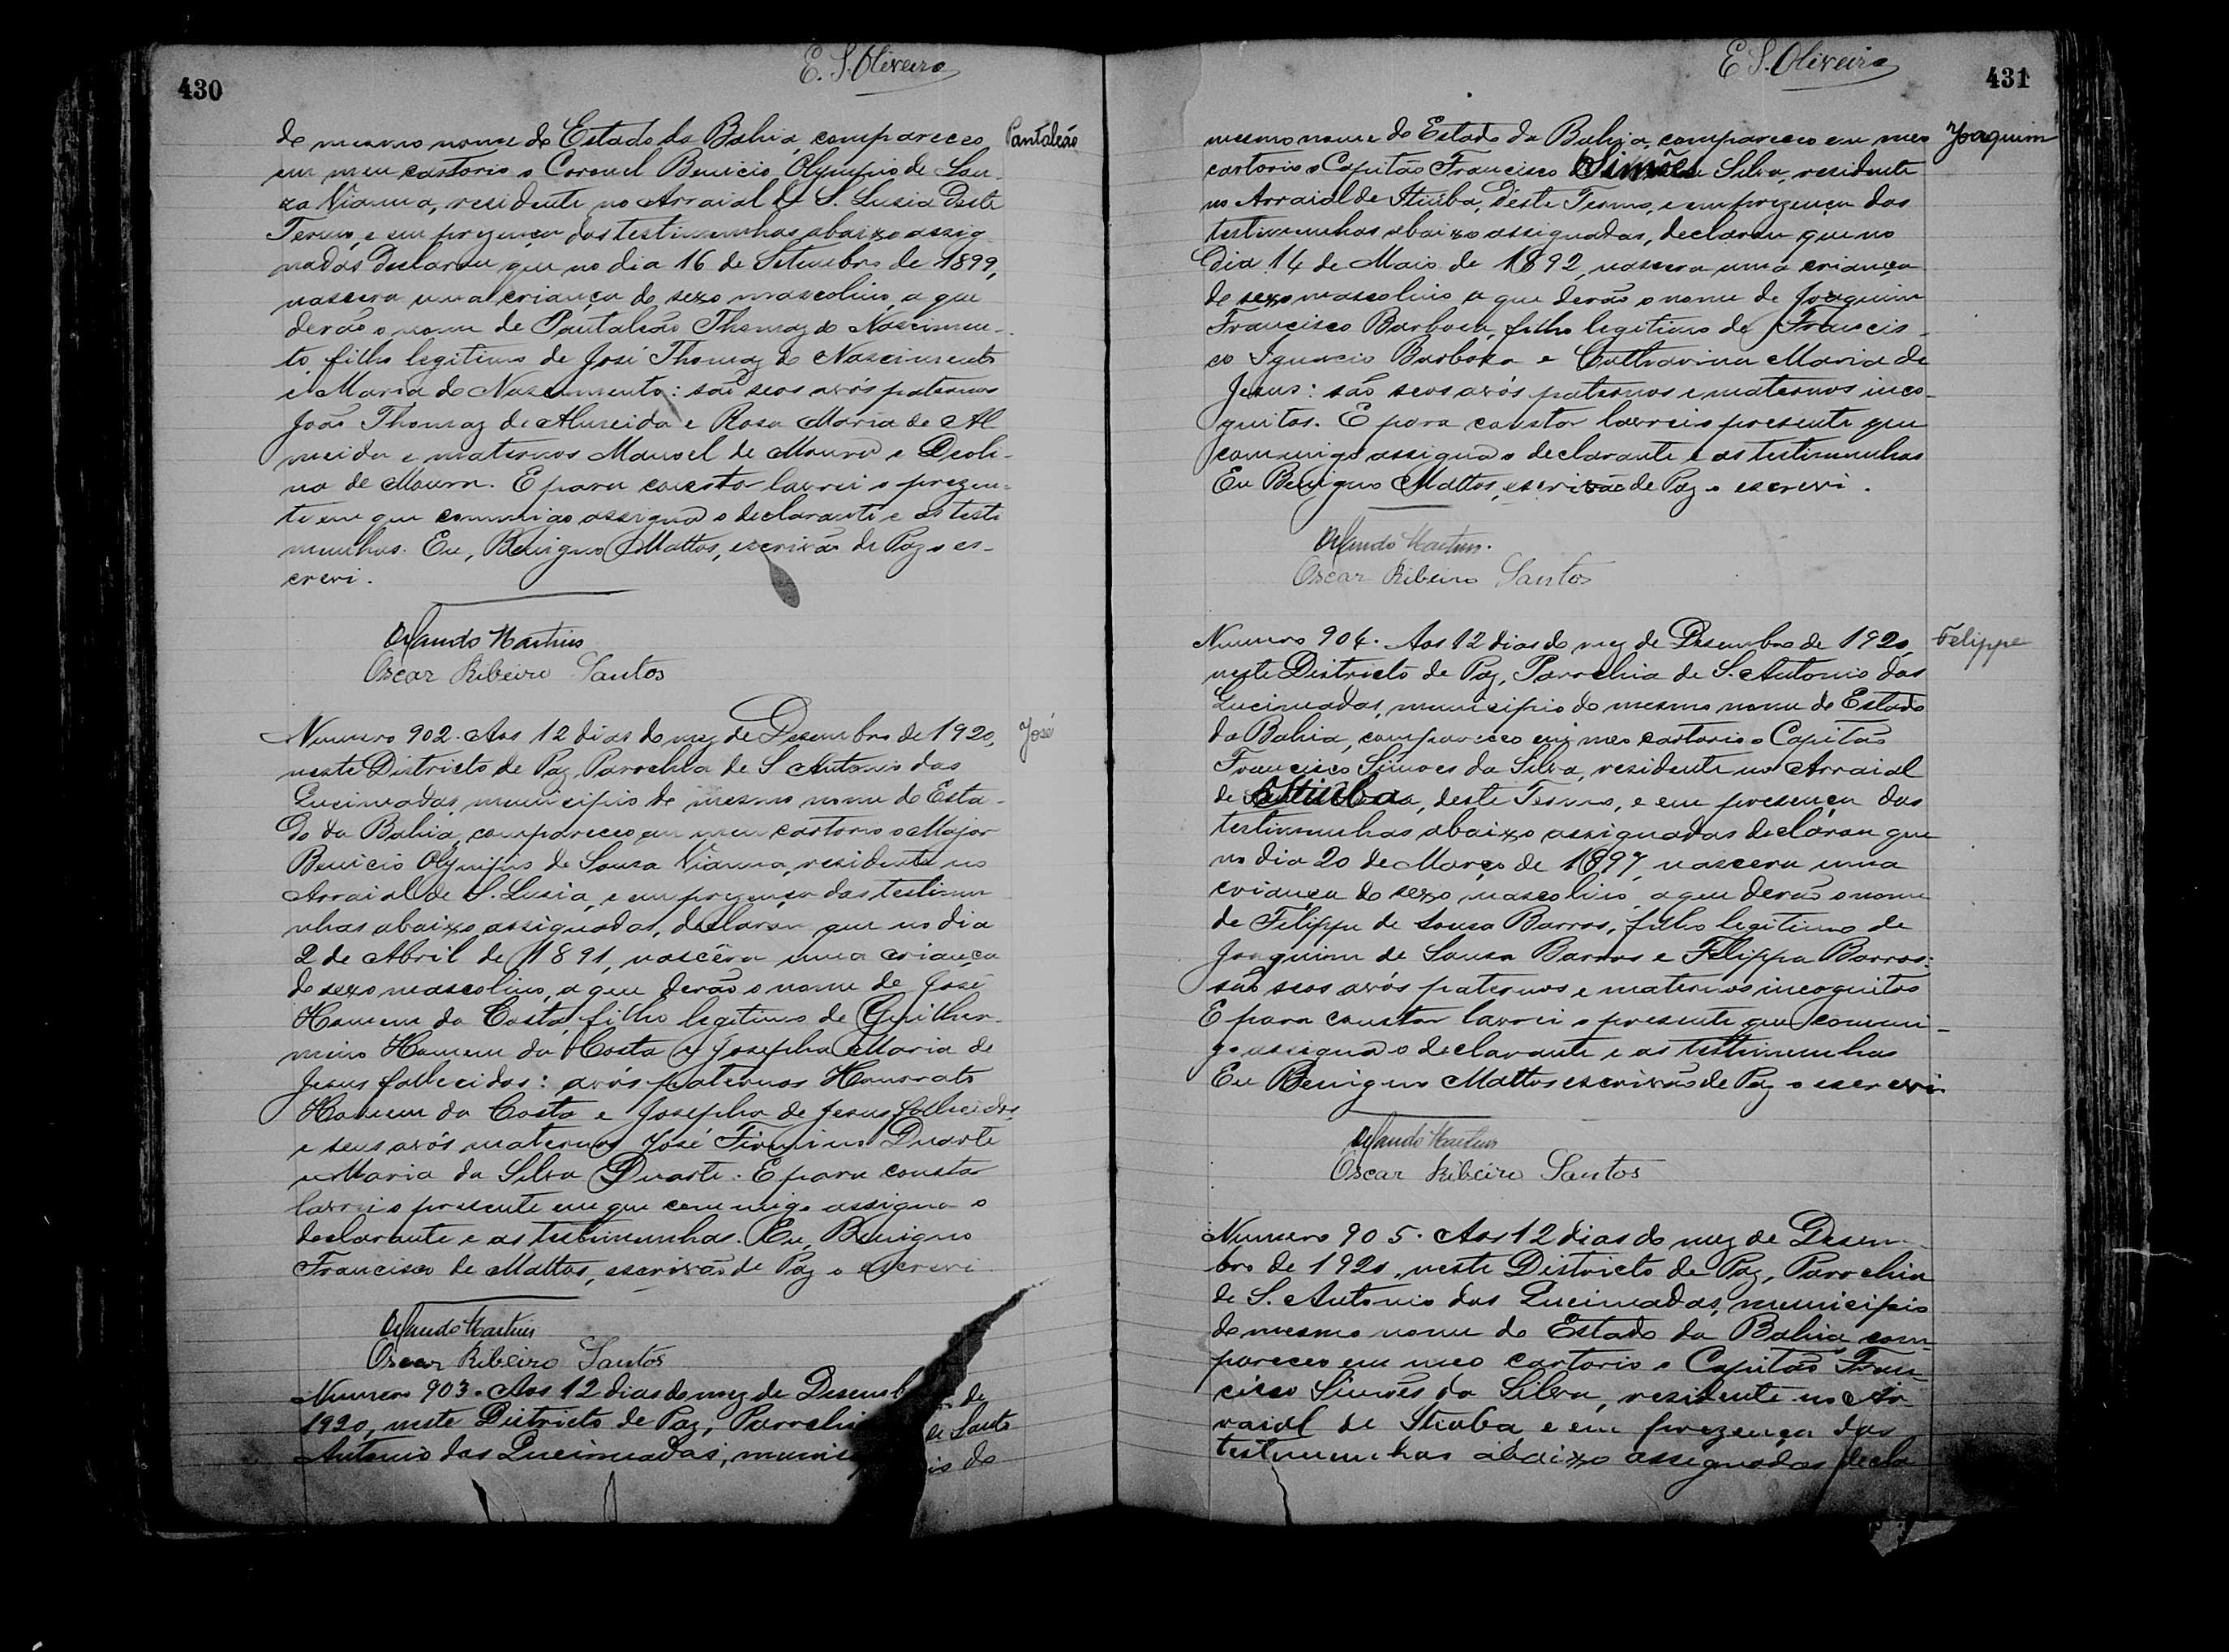 430
E. S. Oliveira
do mesmo nome do Estado da Bahia, compareceo
Pantaleão
em meu cartorio o Coronel Benicio Olympio de Sou-
za Vianna, residente no Arraial de S. Lusia deste
Termo, e em prezença das testimunhas abaixo assig
nadas declarou que no dia 16 de Setembro de 1899,
nascera uma criança do sexo mascolino, a que
derão o nome de Pantaleão Thomaz do Nascimen-
to, filho legitimo de José Thomaz do Nascimento
e Maria do Nascimento: são seos avós paternos
João Thomaz de Almeida e Rosa Maria de Al
meida e maternos Manoel de Moura e Deoli-
na de Moura. E para constar lavrei o prezen-
te em que commigo assigna o declarante e as testi
munhas. Eu, Benigno Mattos, escrivão de Paz o es-
crevi.
Orlando Martins
Oscar Ribeiro Santos
Numero 902. Aos 12 dias do mez de Desembro de 1920,
José
neste Districto de Paz, Parochia de S Antonio das
Queimadas, municipio do mesmo nome do Esta-
do da Bahia, compareceo em meu cartorio o Major
Benicio Olympio de Sousa Vianna, residente no
Arraial de S. Lusia, e em prezença das testimu
nhas abaixo assignadas, declarou que no dia
2 de Abril de 1891, nascêra uma criança
do sexo mascolino, a que derão o nome de José
Homem da Costa, filho legitimo de Guilher-
mino Homem da Costa e Josepha Maria de
Jesus fallecidos: avós paternos Honorato
Homem da Costa e Josepha de Jesus, fallecidos
e seus avós maternos José Firmino Duarte
e Maria da Silva Duarte. E para constar
lavrei o presente em que commigo assigna o
declarante e as testimunhas. Eu, Benigno
Francisco de Mattos, escrivão de Paz o escrevi
Orlando Martins
Oscar Ribeiro Santos
Numero 903. Aos 12 dias do mez de Desemb de
1920, neste Districto de Paz, Parochi de Santo
Antonio das Queimadas, munici io do
431
E S. Oliveira
mesmo nome do Estado da Bahia, compareceo em meo
Joaquim
cartorio o Capitão Francisco Simões Silva, residente
no Arraial de Itiúba, deste Termo, e em prezença das
testimunhas abaixo assignadas, declarou que no
dia 14 de Maio de 1892, nascera uma criança
do sexo mascolino, a que derão o nome de Joaquim
Francisco Barboza, filho legitimo de Francis-
co Ignacio Barboza e Catharina Maria de
Jesus: são seos avós paternos e maternos inco-
gnitos. E para constar lavrei o presente que
commigo assigna o declarante e as testimunhas
Eu Benigno Mattos, escrivão de Paz o escrevi.
Orlando Martins.
Oscar Ribeiro Santos
Numero 904. Aos 12 dias do mez de Desembro de 1920,
Felippe
neste Districto de Paz, Parochia de S. Antonio das
Queimadas, municipio do mesmo nome do Estado
da Bahia, compareceo em meo cartorio o Capitão
Francisco Simoes da Silva, residente no Arraial
de Itiuba, deste Termo, e em presença das
testimunhas abaixo assignadas declarou que
no dia 20 de Março de 1897, nascera uma
criança do sexo mascolino, a que derão o nome
de Felippe de Sousa Barros, filho legitimo de
Joaquim de Sousa Barros e Felippa Barros:
são seos avós paternos e maternos incognitos
E para constar lavrei o presente que commi-
go assigna o declarante e as testimunhas
Eu Benigno Mattos escrivão de Paz o escrevi
Orlando Martins
Oscar Ribeiro Santos
Numero 905. Aos 12 dias do mez de Desem-
bro de 1920, neste Districto de Paz, Parochia
de S. Antonio das Queimadas, municipio
do mesmo nome do Estado da Bahia com-
pareceo em meo cartorio o Capitão Fran-
cisco Simões da Silva, residente no Ar-
raial de Itiuba, e em prezença das
testimunhas abaixo assignadas decla